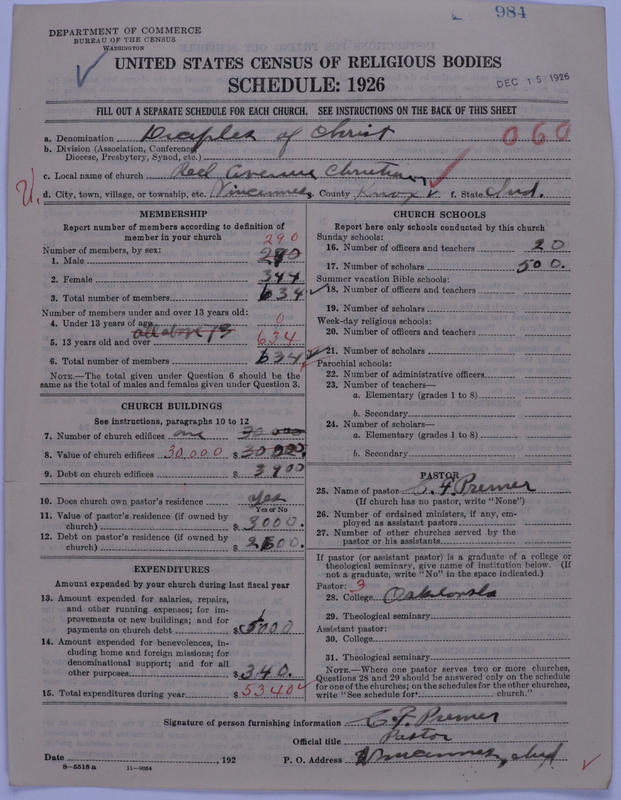 984
DEPARTMENT OF COMMERCE
BUREAU OF THE CENSUS
WASHINGTON
UNITED STATES CENSUS OF RELIGIOUS BODIES
SCHEDULE: 1926
DEC 15 1926
FILL OUT A SEPARATE SCHEDULE FOR EACH CHURCH. SEE INSTRUCTIONS ON THE BACK OF THIS SHEET
a. Denomination Disciples of Christ 060
b. Division (Association, Conference, Diocese, Presbytery, Synod, etc.)
c. Local name of church Avenue Christian
d. City, town, village, or township, etc. Vincennes County Knox f. State Ind.
MEMBERSHIP
Report number of members according to definition of member in your church
290
Number of members, by sex:
1. Male
2. Female 344
3. Total number of members 634
Number of members under and over 13 years old:
4. Under 13 years of age 0
all above 13
5. 13 years old and over 634
6. Total number of members 634
NOTE.—The total given under Question 6 should be the same as the total of males and females given under Question 3.
CHURCH BUILDINGS
See instructions, paragraphs 10 to 12
7. Number of church edifices one 30 000
8. Value of church edifices 30,000 $ 30 000
9. Debt on church edifices 3900
10. Does church own pastor's residence Yes
Yes or No
11. Value of pastor's residence (if owned by church) $ 3000.
12. Debt on pastor's residence (if owned by church) $
EXPENDITURES
Amount expended by your church during last fiscal year
13. Amount expended for salaries, repairs, and other running expenses; for improvements or new buildings; and for payments on church debt $ 5000
14. Amount expended for benevolences, including home and foreign missions; for denominational support; and for all other purposes $ 340.
15. Total expenditures during year $ 5340
CHURCH SCHOOLS
Report here only schools conducted by this church
Sunday schools:
16. Number of officers and teachers 20
17. Number of scholars 500.
Summer vacation Bible schools:
18. Number of officers and teachers
19. Number of scholars
Week-day religious schools:
20. Number of officers and teachers
21. Number of scholars
Parochial schools:
22. Number of administrative officers
23. Number of teachers—
a. Elementary (grades 1 to 8)
b. Secondary
24. Number of scholars—
a. Elementary (grades 1 to 8)
b. Secondary
PASTOR
25. Name of pastor C. F. Premer
(If church has no pastor, write "None")
26. Number of ordained ministers, if any, employed as assistant pastors
27. Number of other churches served by the pastor or his assistants
If pastor (or assistant pastor) is a graduate of a college or theological seminary, give name of institution below. (If not a graduate, write "No" in the space indicated.)
Pastor: 3
28. College Oskaloosa
29. Theological seminary
Assistant pastor:
30. College
31. Theological seminary
NOTE.—Where one pastor serves two or more churches, Questions 28 and 29 should be answered only on the schedule for one of the churches; on the schedules for the other churches, write "See schedule for church."
Signature of person furnishing information C. F. Premer
Official title Pastor
Date , 192 P. O. Address Vincennes, Ind.
8—5518 a 11—9054